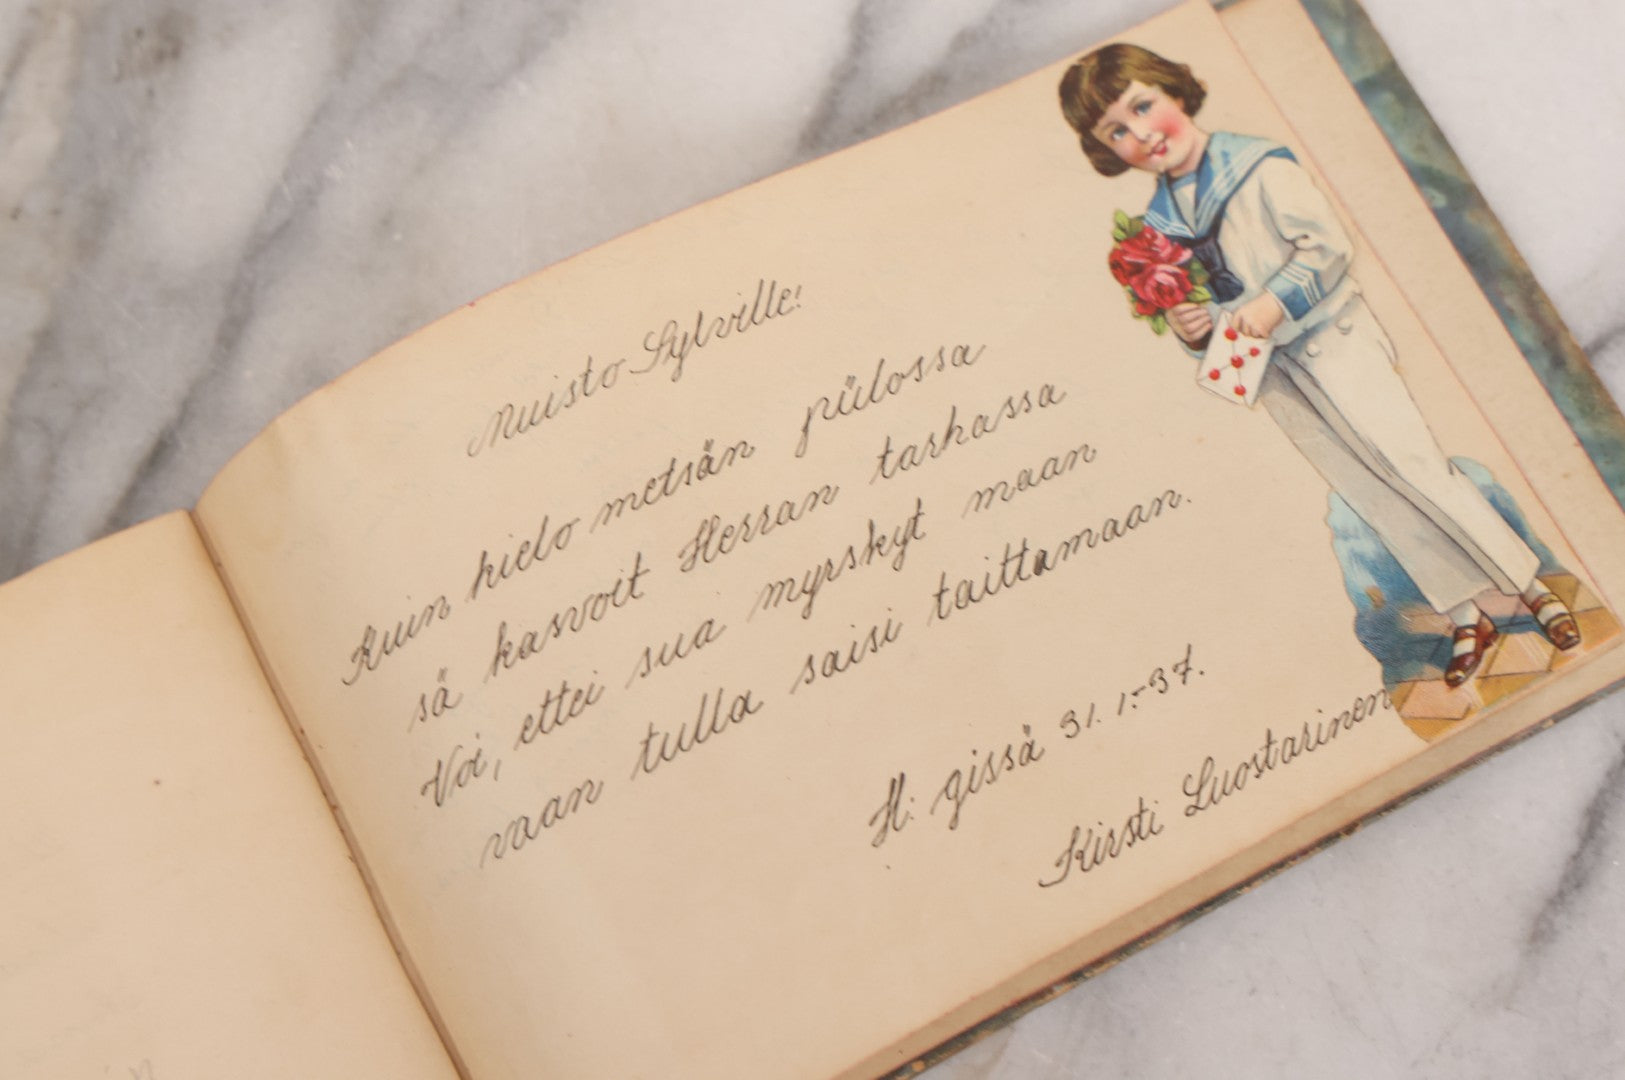 Muisto Sylville!
Kuin kielo metsän piilossa
sä kasvoit Herran tarhassa
Voi, ettei sua myrskyt maan
vaan tulla saisi taittamaan.
H: gissä 31. 1.-37.
Kirsti Luostarinen